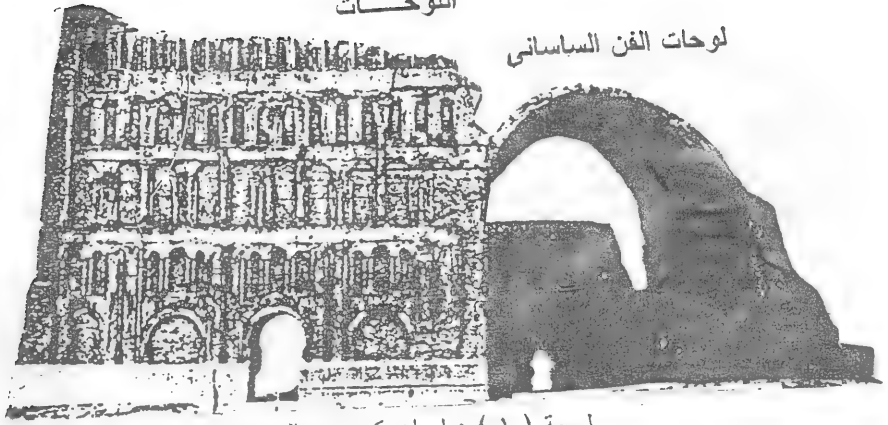 اللوحـــــات
لوحات الفن الساساني
لوحة (١)